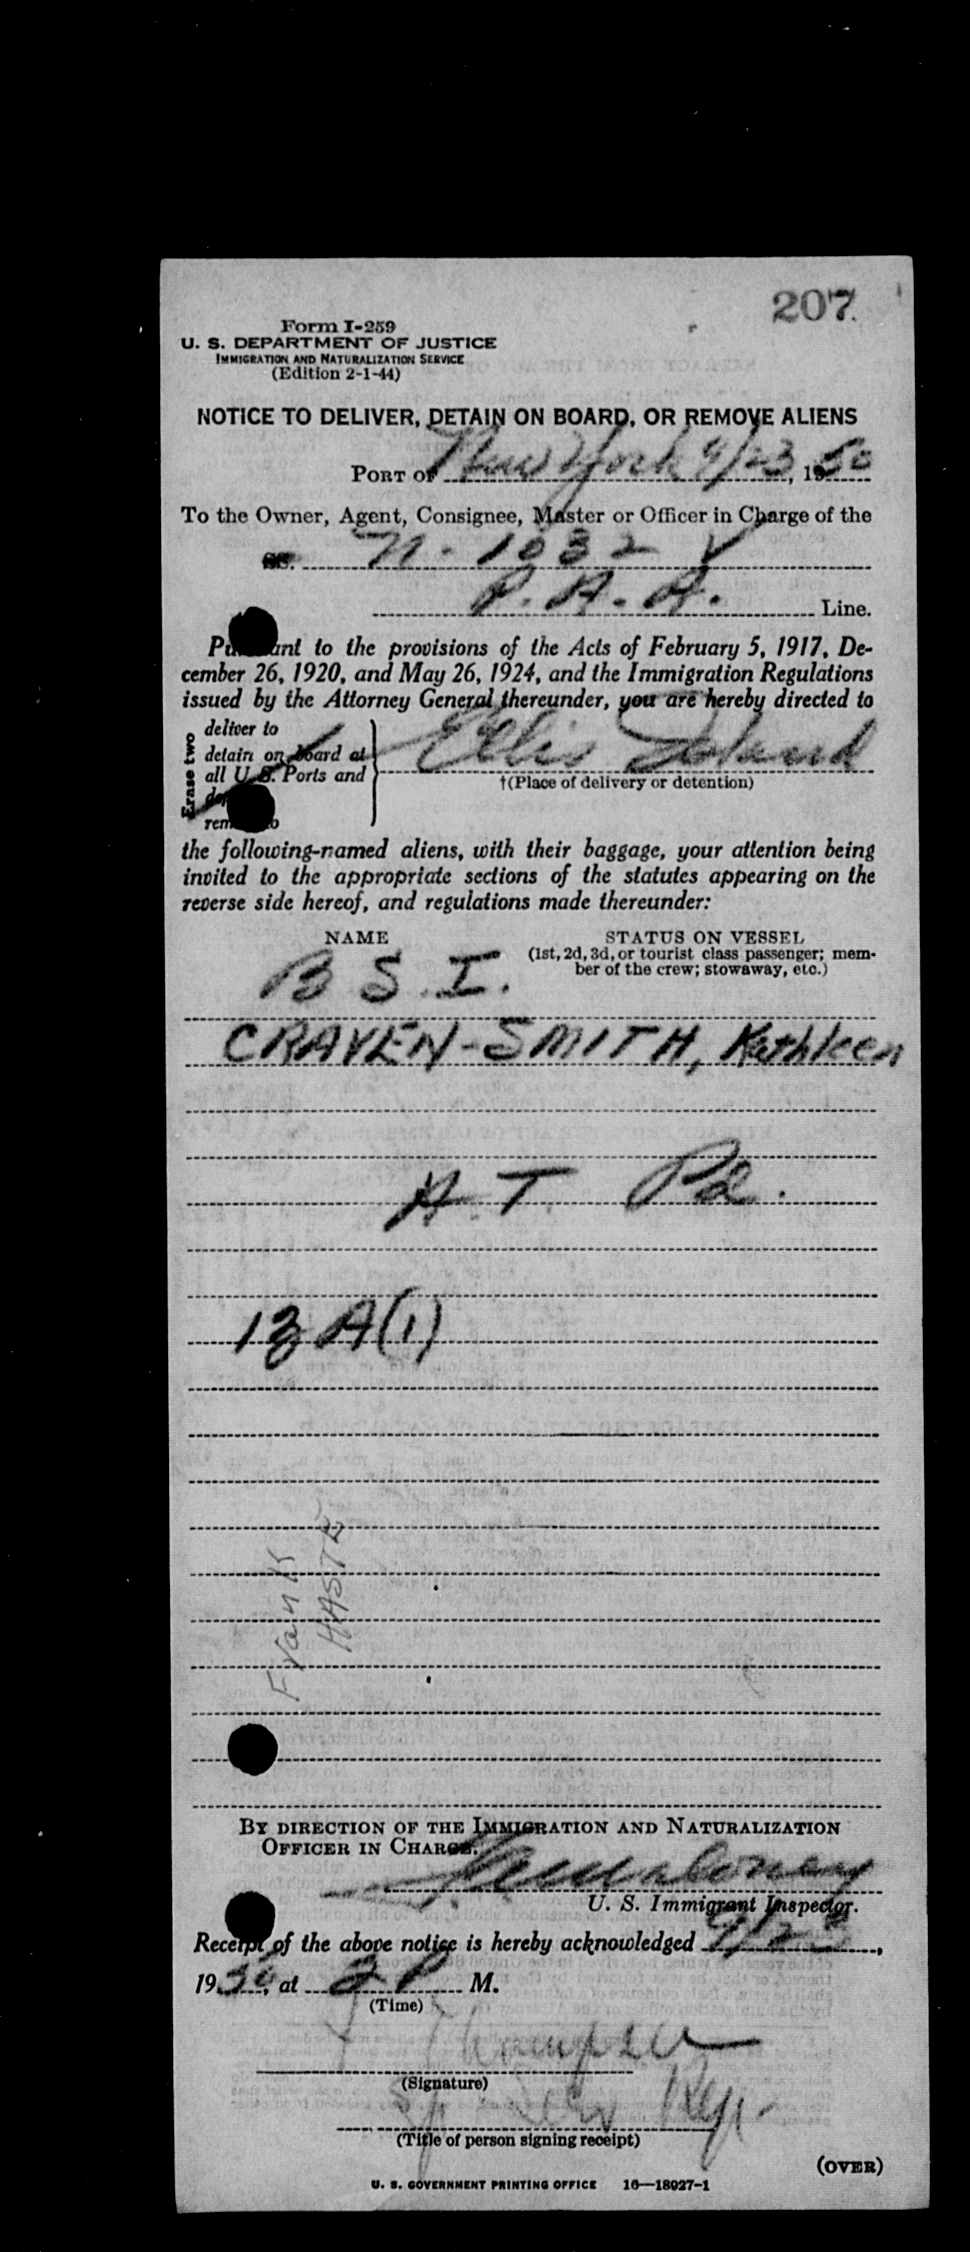 207
Form I-259
U. S. DEPARTMENT OF JUSTICE
IMMIGRATION AND NATURALIZATION SERVICE
(Edition 2-1-44)
NOTICE TO DELIVER, DETAIN ON BOARD, OR REMOVE ALIENS
PORT OF New York 9/23, 1950
To the Owner, Agent, Consignee, Master or Officer in Charge of the
SS. N. 1032 V
P. A. A. Line.
Pursuant to the provisions of the Acts of February 5, 1917, De-
cember 26, 1920, and May 26, 1924, and the Immigration Regulations
issued by the Attorney General thereunder, you are hereby directed to
Erase two
deliver to
detain on board at
all U. S. Ports and
remove to
Ellis Island
†(Place of delivery or detention)
the following-named aliens, with their baggage, your attention being
invited to the appropriate sections of the statutes appearing on the
reverse side hereof, and regulations made thereunder:
NAME STATUS ON VESSEL
(1st, 2d, 3d, or tourist class passenger; mem-
ber of the crew; stowaway, etc.)
B S. I.
CRAVEN-SMITH, Kathleen
A. T. Pd.
13 A(1)
Frank
HASTE
BY DIRECTION OF THE IMMIGRATION AND NATURALIZATION
OFFICER IN CHARGE.
U. S. Immigrant Inspector.
Receipt of the above notice is hereby acknowledged 9/23,
1950, at 2 P M.
(Time)
Thompson
(Signature)
Rep.
(Title of person signing receipt)
(OVER)
U. S. GOVERNMENT PRINTING OFFICE 16—18027-1